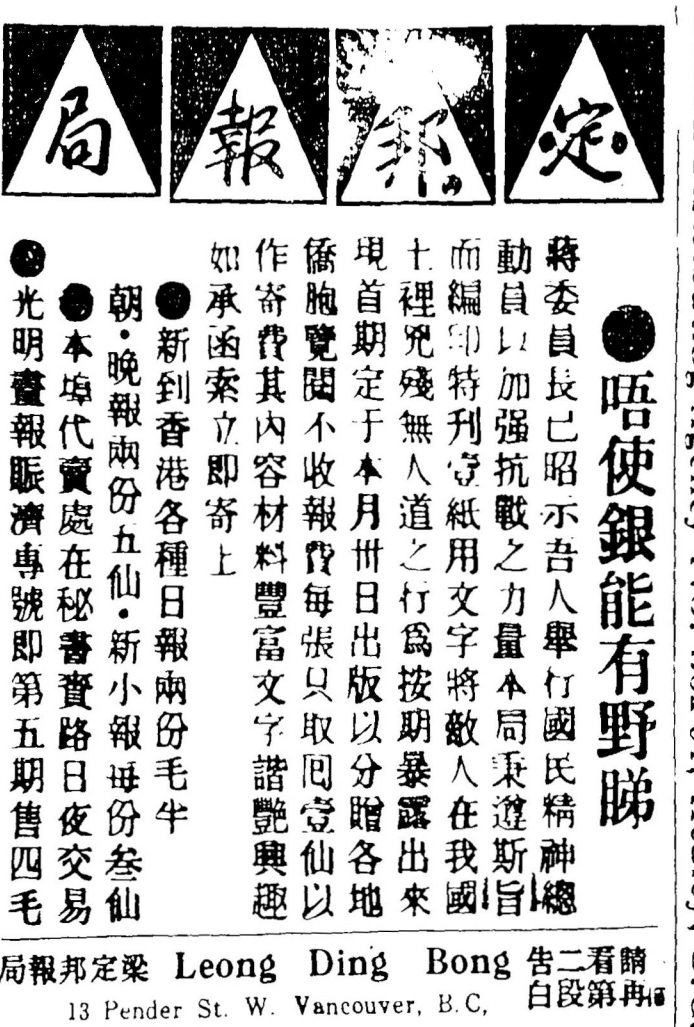 定邦報局
●唔使銀能有野睇
蔣委員長已昭示吾人舉行國民精神總
動員以加强抗戰之力量本局秉遵斯旨
而編印特刊壹紙用文字將敵人在我國
土裡兇殘無人道之行爲按期暴露出來
現首期定于本月卅日出版以分贈各地
僑胞覽閱不收報費每張只取囘壹仙以
作寄費其內容材料豐富文字諧艷興趣
如承函索立即寄上
●新到香港各種日報兩份毛半
朝·晚報兩份五仙·新小報每份叁仙
●本埠代賣處在秘書賣路日夜交易
●光明畫報賑濟專號即第五期售四毛
請再看第二段告白
局報邦定梁 Leong Ding Bong
13 Pender St. W. Vancouver, B.C,